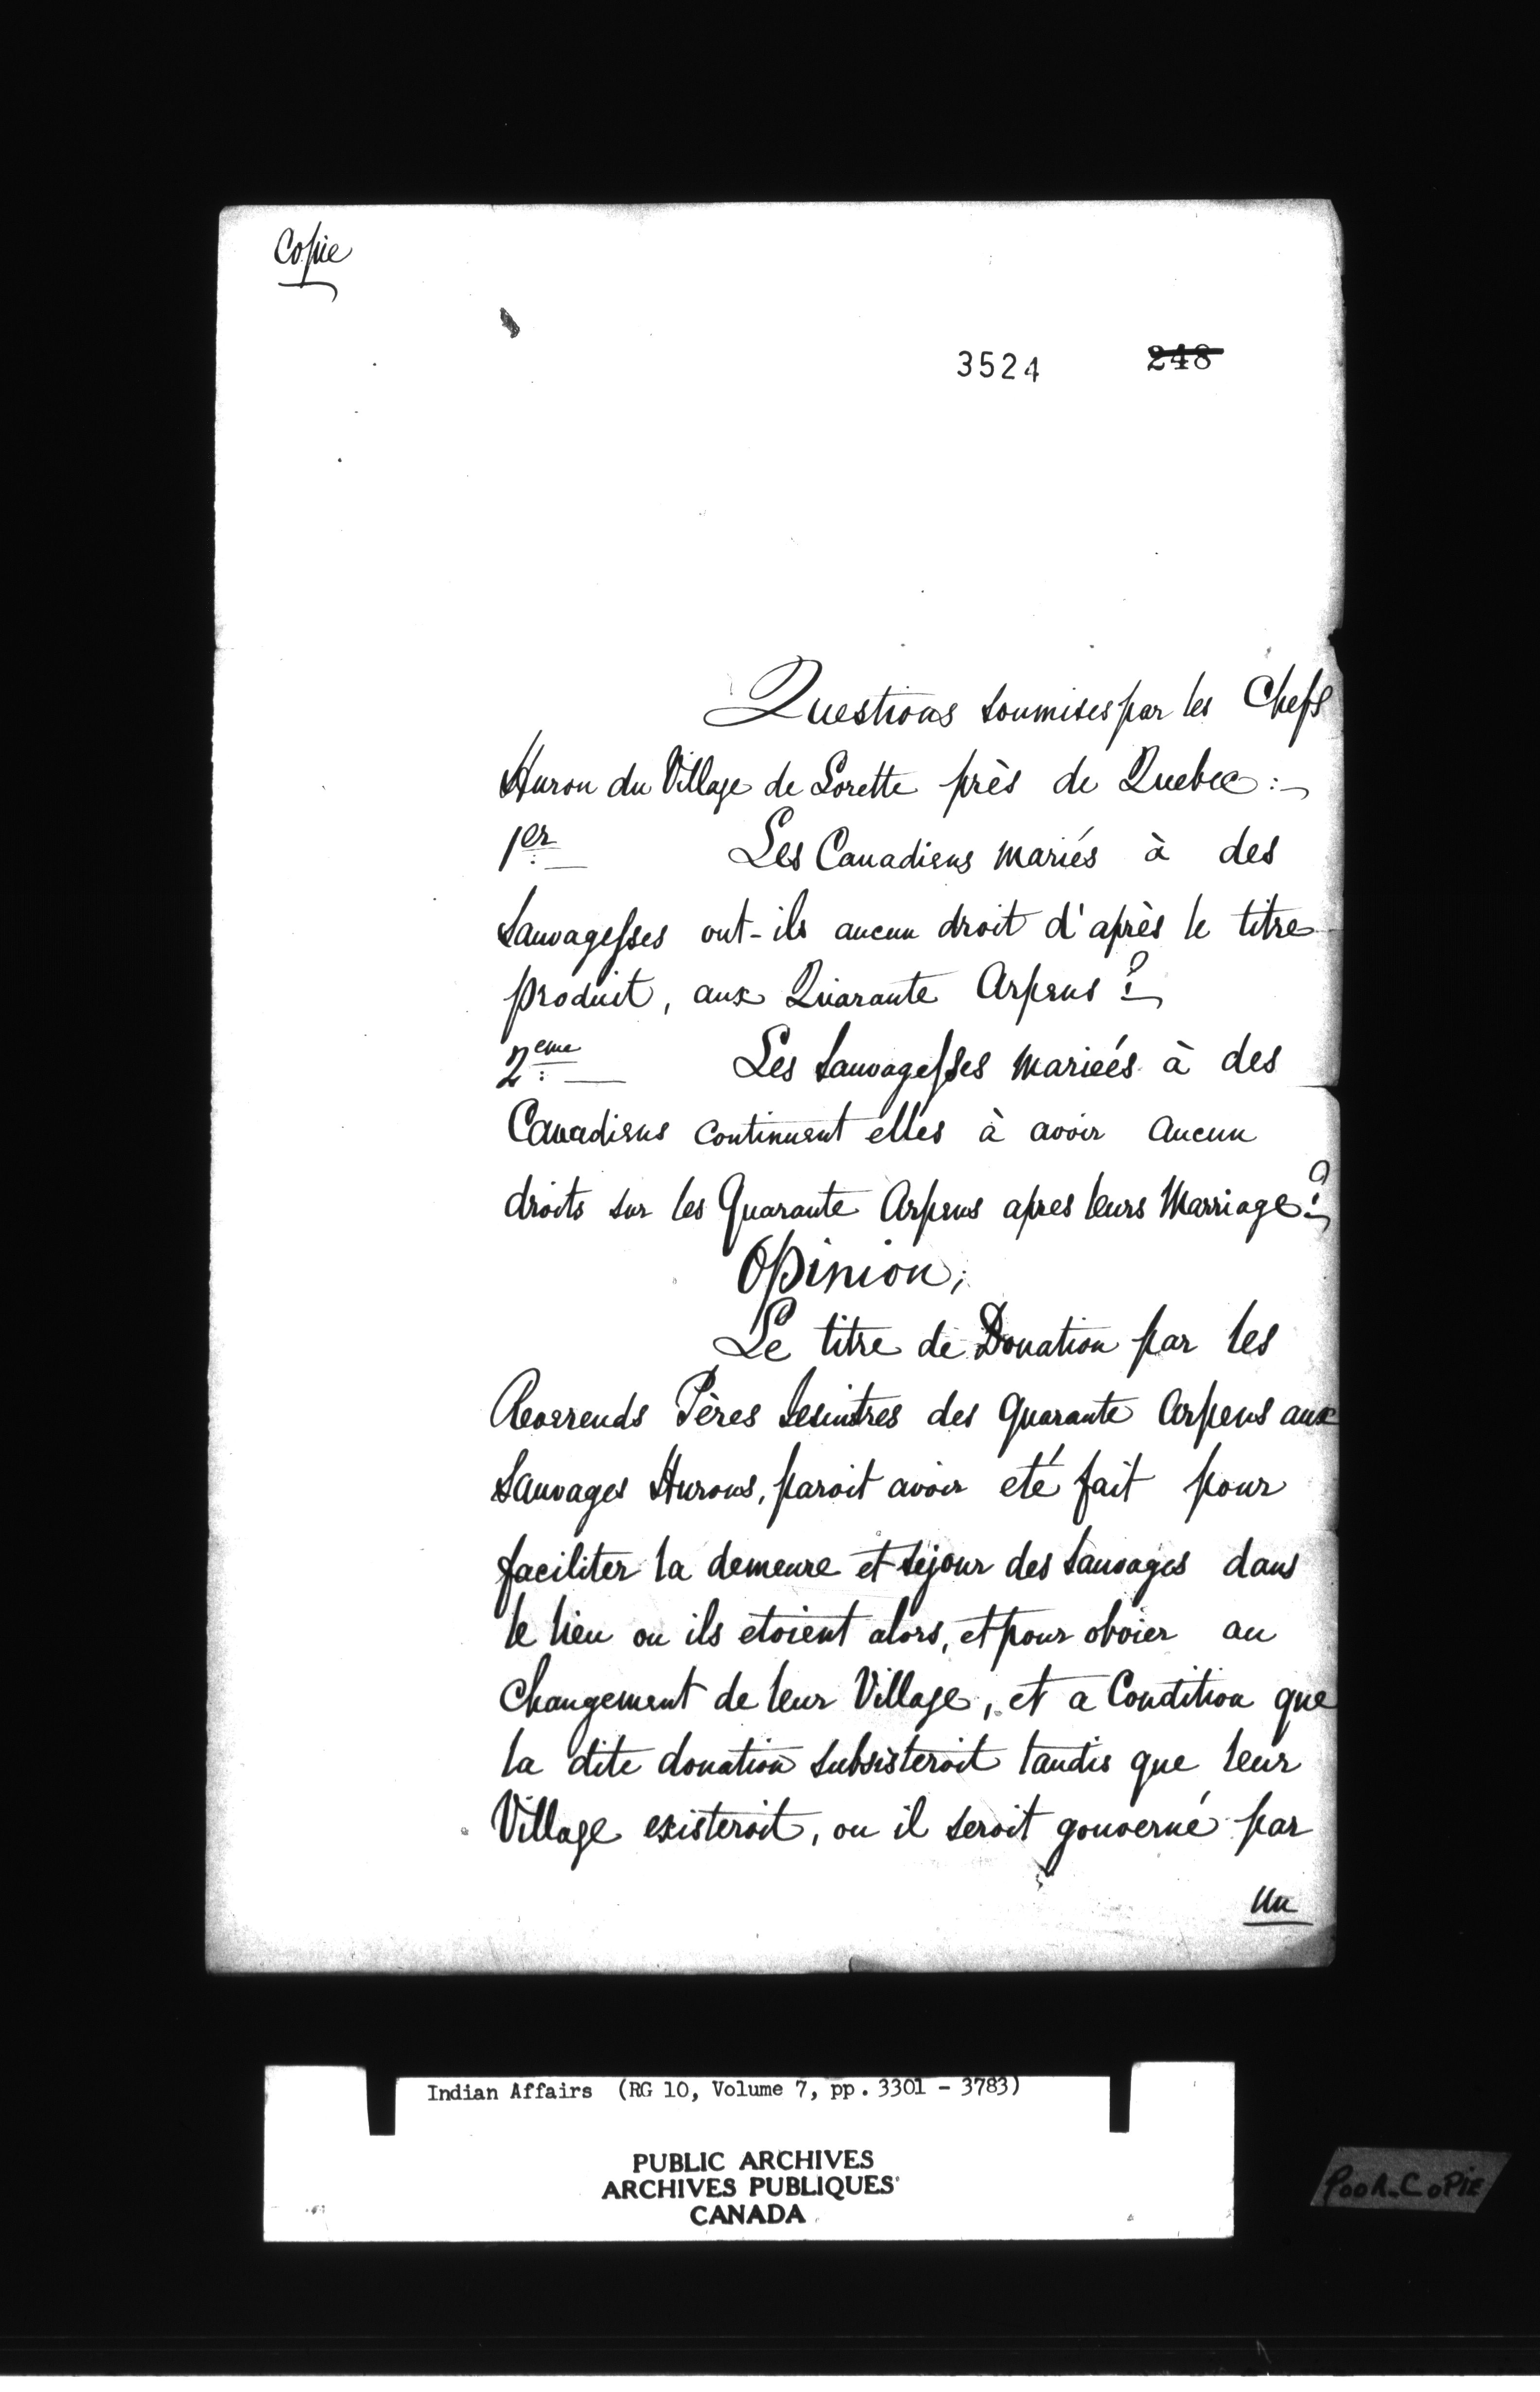 Copie
3524 248
Questions soumises par les Chefs
Huron du Village de Lorette près de Quebec :-
1er
Les Canadiens mariés à des
Sauvagesses ont-ils aucun droit d'après le titre
produit, aux Quarante Arpens ?
2eme
Les Sauvagesses marieés à des
Canadiens continuent elles à avoir aucun
droits sur les Quarante Arpens apres leurs Marriage ?
Opinion;
Le titre de Donation par les
Reverends Pères des Quarante Arpens aux
Sauvages Hurons, paroit avoir eté fait pour
faciliter la demeure et séjour des Sauvages dans
le lieu ou ils etoient alors, et pour obvier au
Changement de leur Village, et a Condition que
la dite donation subsisteroit tandis que leur
Village existeroit, ou il seroit gouverné par
Un
Indian Affairs (RG 10, Volume 7, pp. 3301 - 3783)
PUBLIC ARCHIVES
ARCHIVES PUBLIQUES
CANADA
POOR COPIE